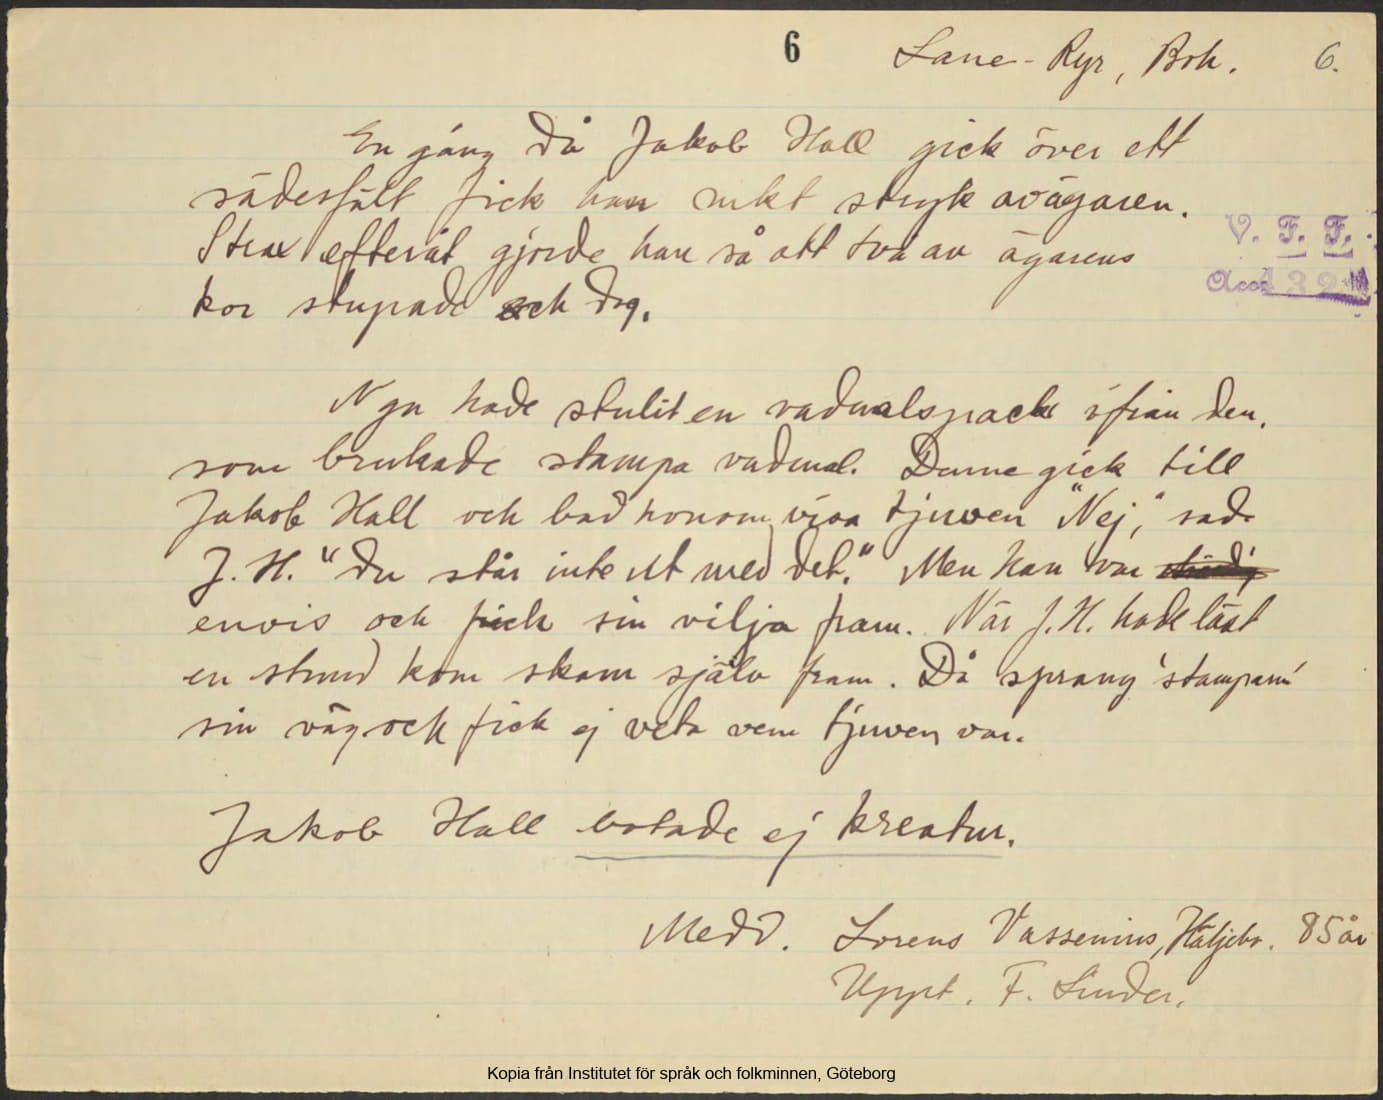 6 Lane-Ryr, Boh. 6.
En gång då Jakob Hall gick över ett
sädesfält fick han rukt stryk av ägaren.
Strax efteråt gjorde han så att två av ägarens
kor stupade och dog.
V. F. F.
Acc.
Ngn hade stulit en vadmalspack ifrån den,
som brukade stampa vadmal. Denne gick till
Jakob Hall och bad honom visa tjuven "Nej," sade
J. H. "du står inte ut med det." Men han var
envis och fick sin vilja fram. När J. H. hade läst
en stund kom skam själv fram. Då sprang 'stamparn'
sin väg och fick ej veta vem tjuven var.
Jakob Hall botade ej kreatur.
Medd. Lorens Vassenius, Häljebo. 85 år
Uppt. F. Linder.
Kopia från Institutet för språk och folkminnen, Göteborg